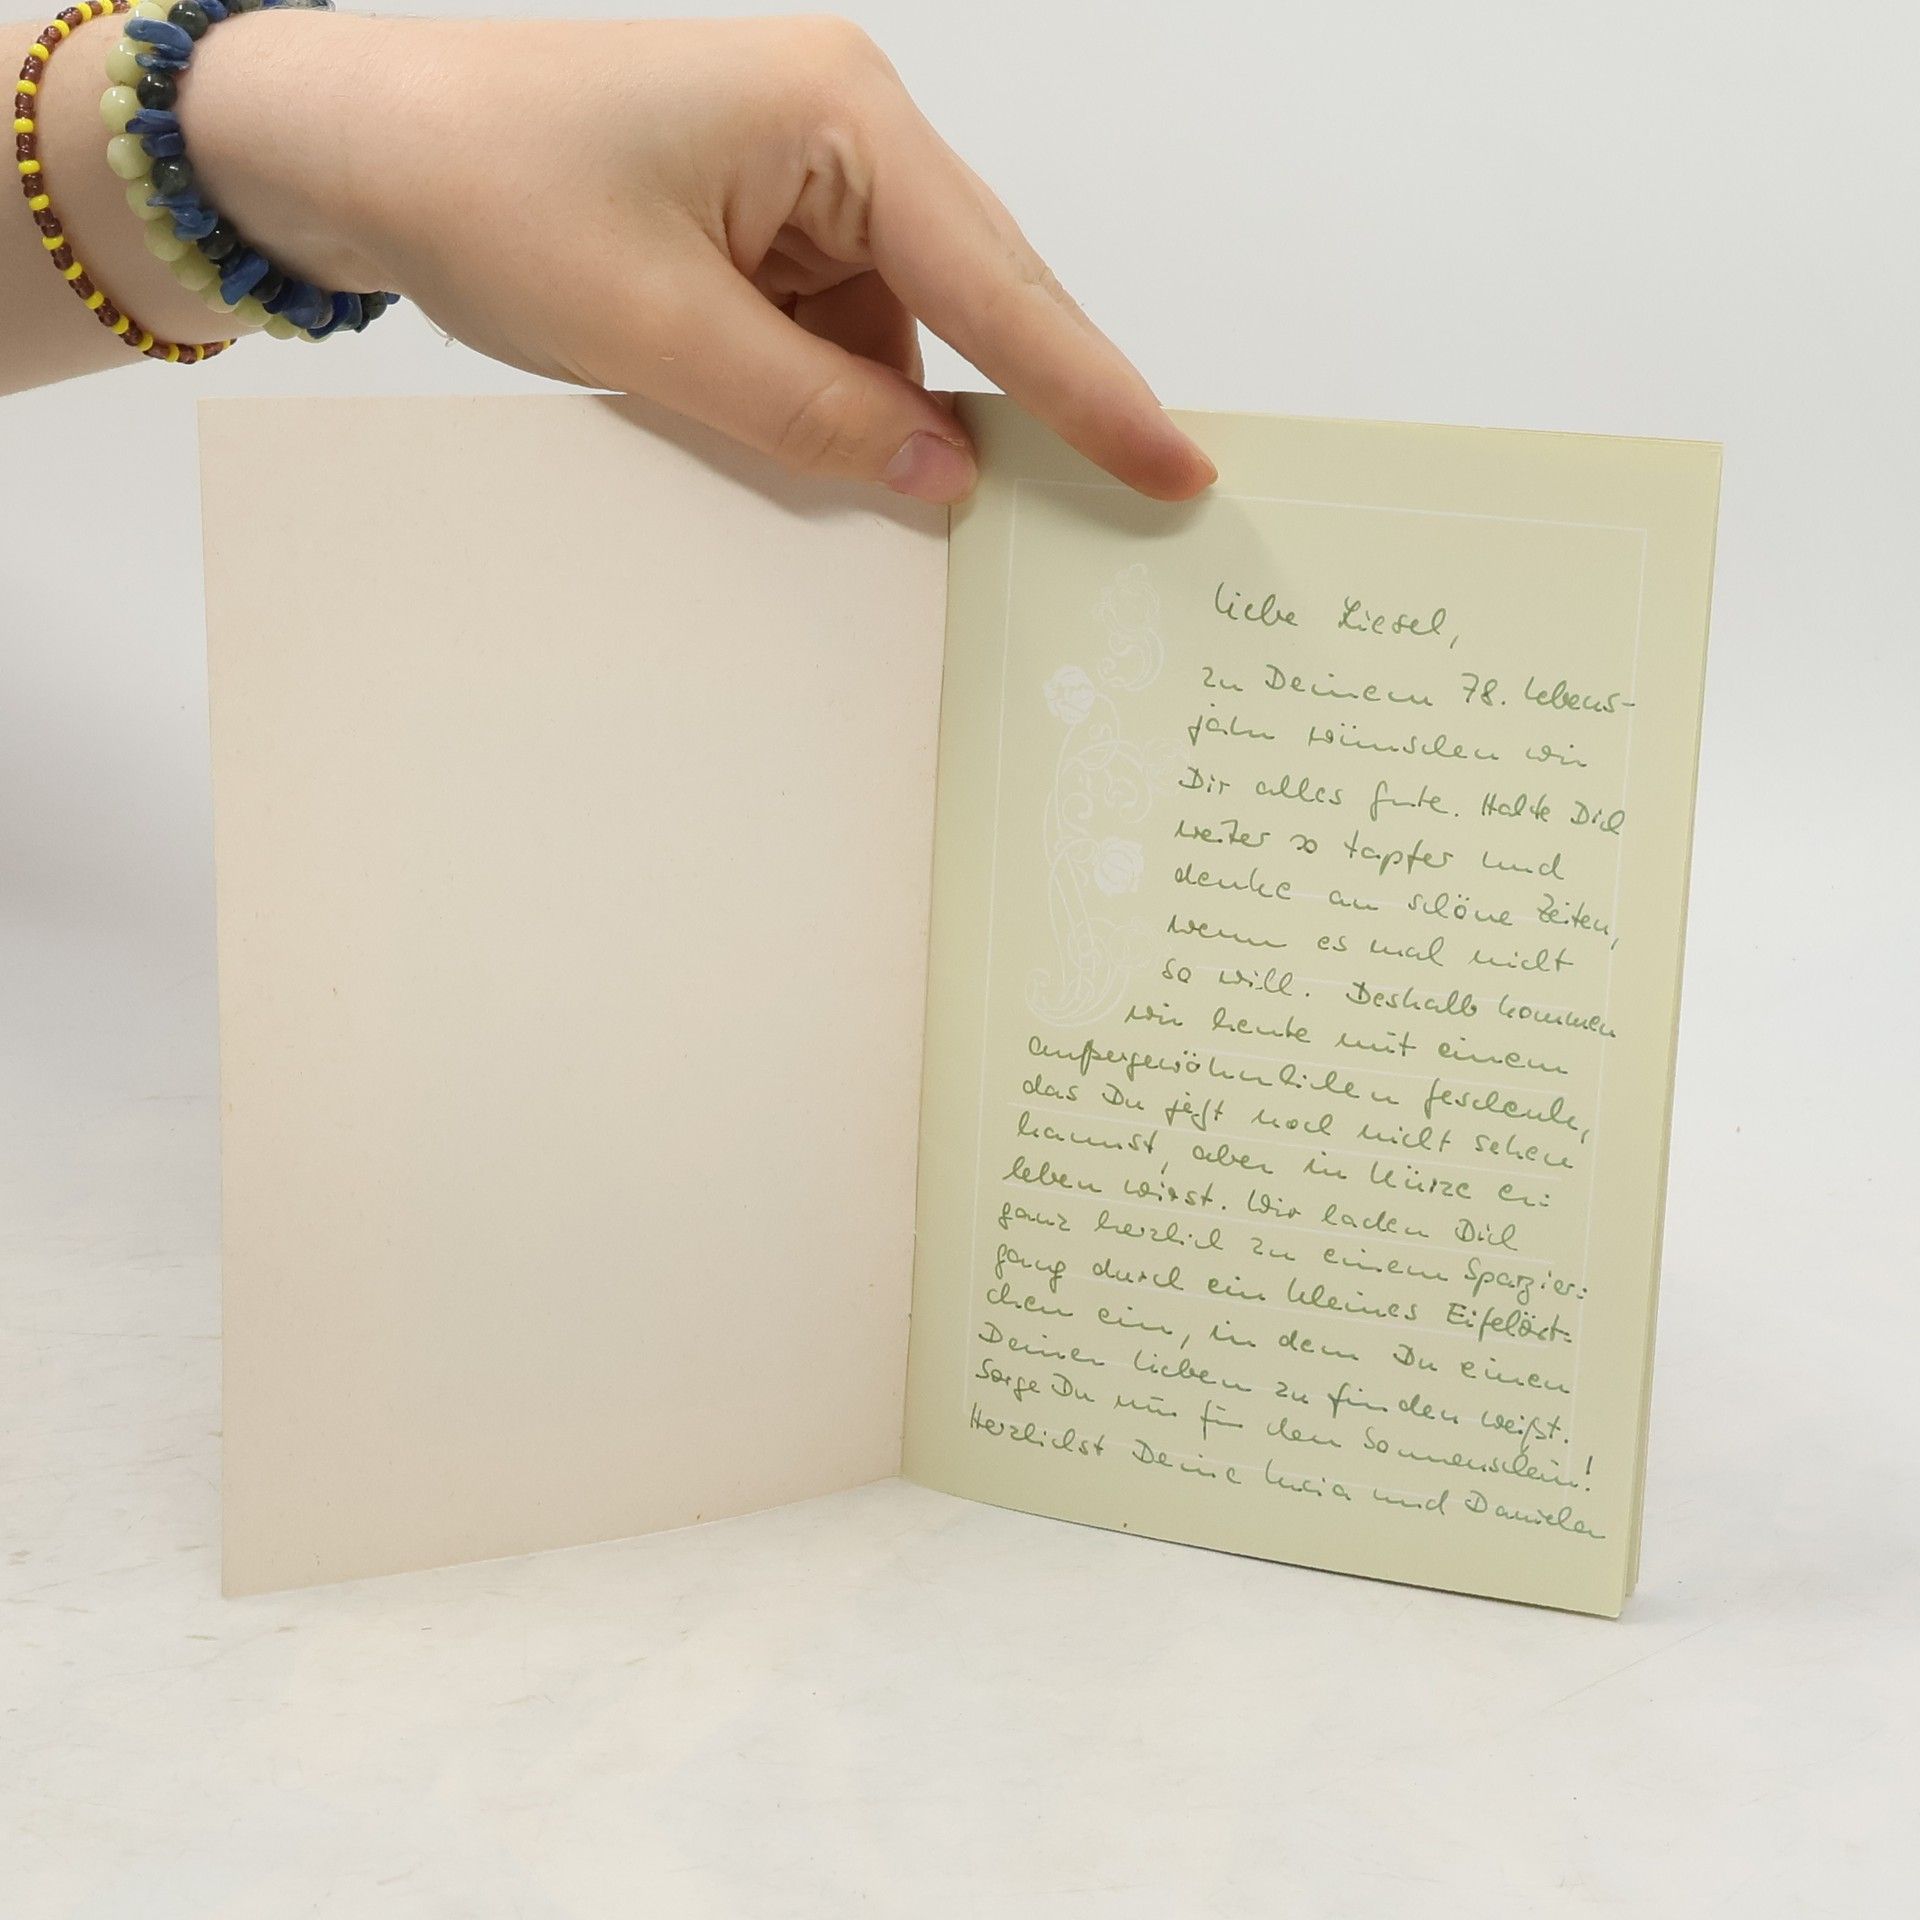 Liebe Liesel,
zu Deinem 78. Lebens-
jahr wünschen wir
Dir alles Gute. Halte Dich
weiter so tapfer und
denke an schöne Zeiten,
wenn es mal nicht
so will. Deshalb kommen
wir heute mit einem
außergewöhnlichen Geschenk,
das Du jetzt noch nicht sehen
kannst, aber in Kürze er=
leben wirst. Wir laden Dich
ganz herzlich zu einem Spazier=
gang durch ein kleines Eifelört=
chen ein, in dem Du einen
Deiner Lieben zu finden weißt.
Sorge Du nur für den Sonnenschein!
Herzlichst Deine Lucia und Daniela